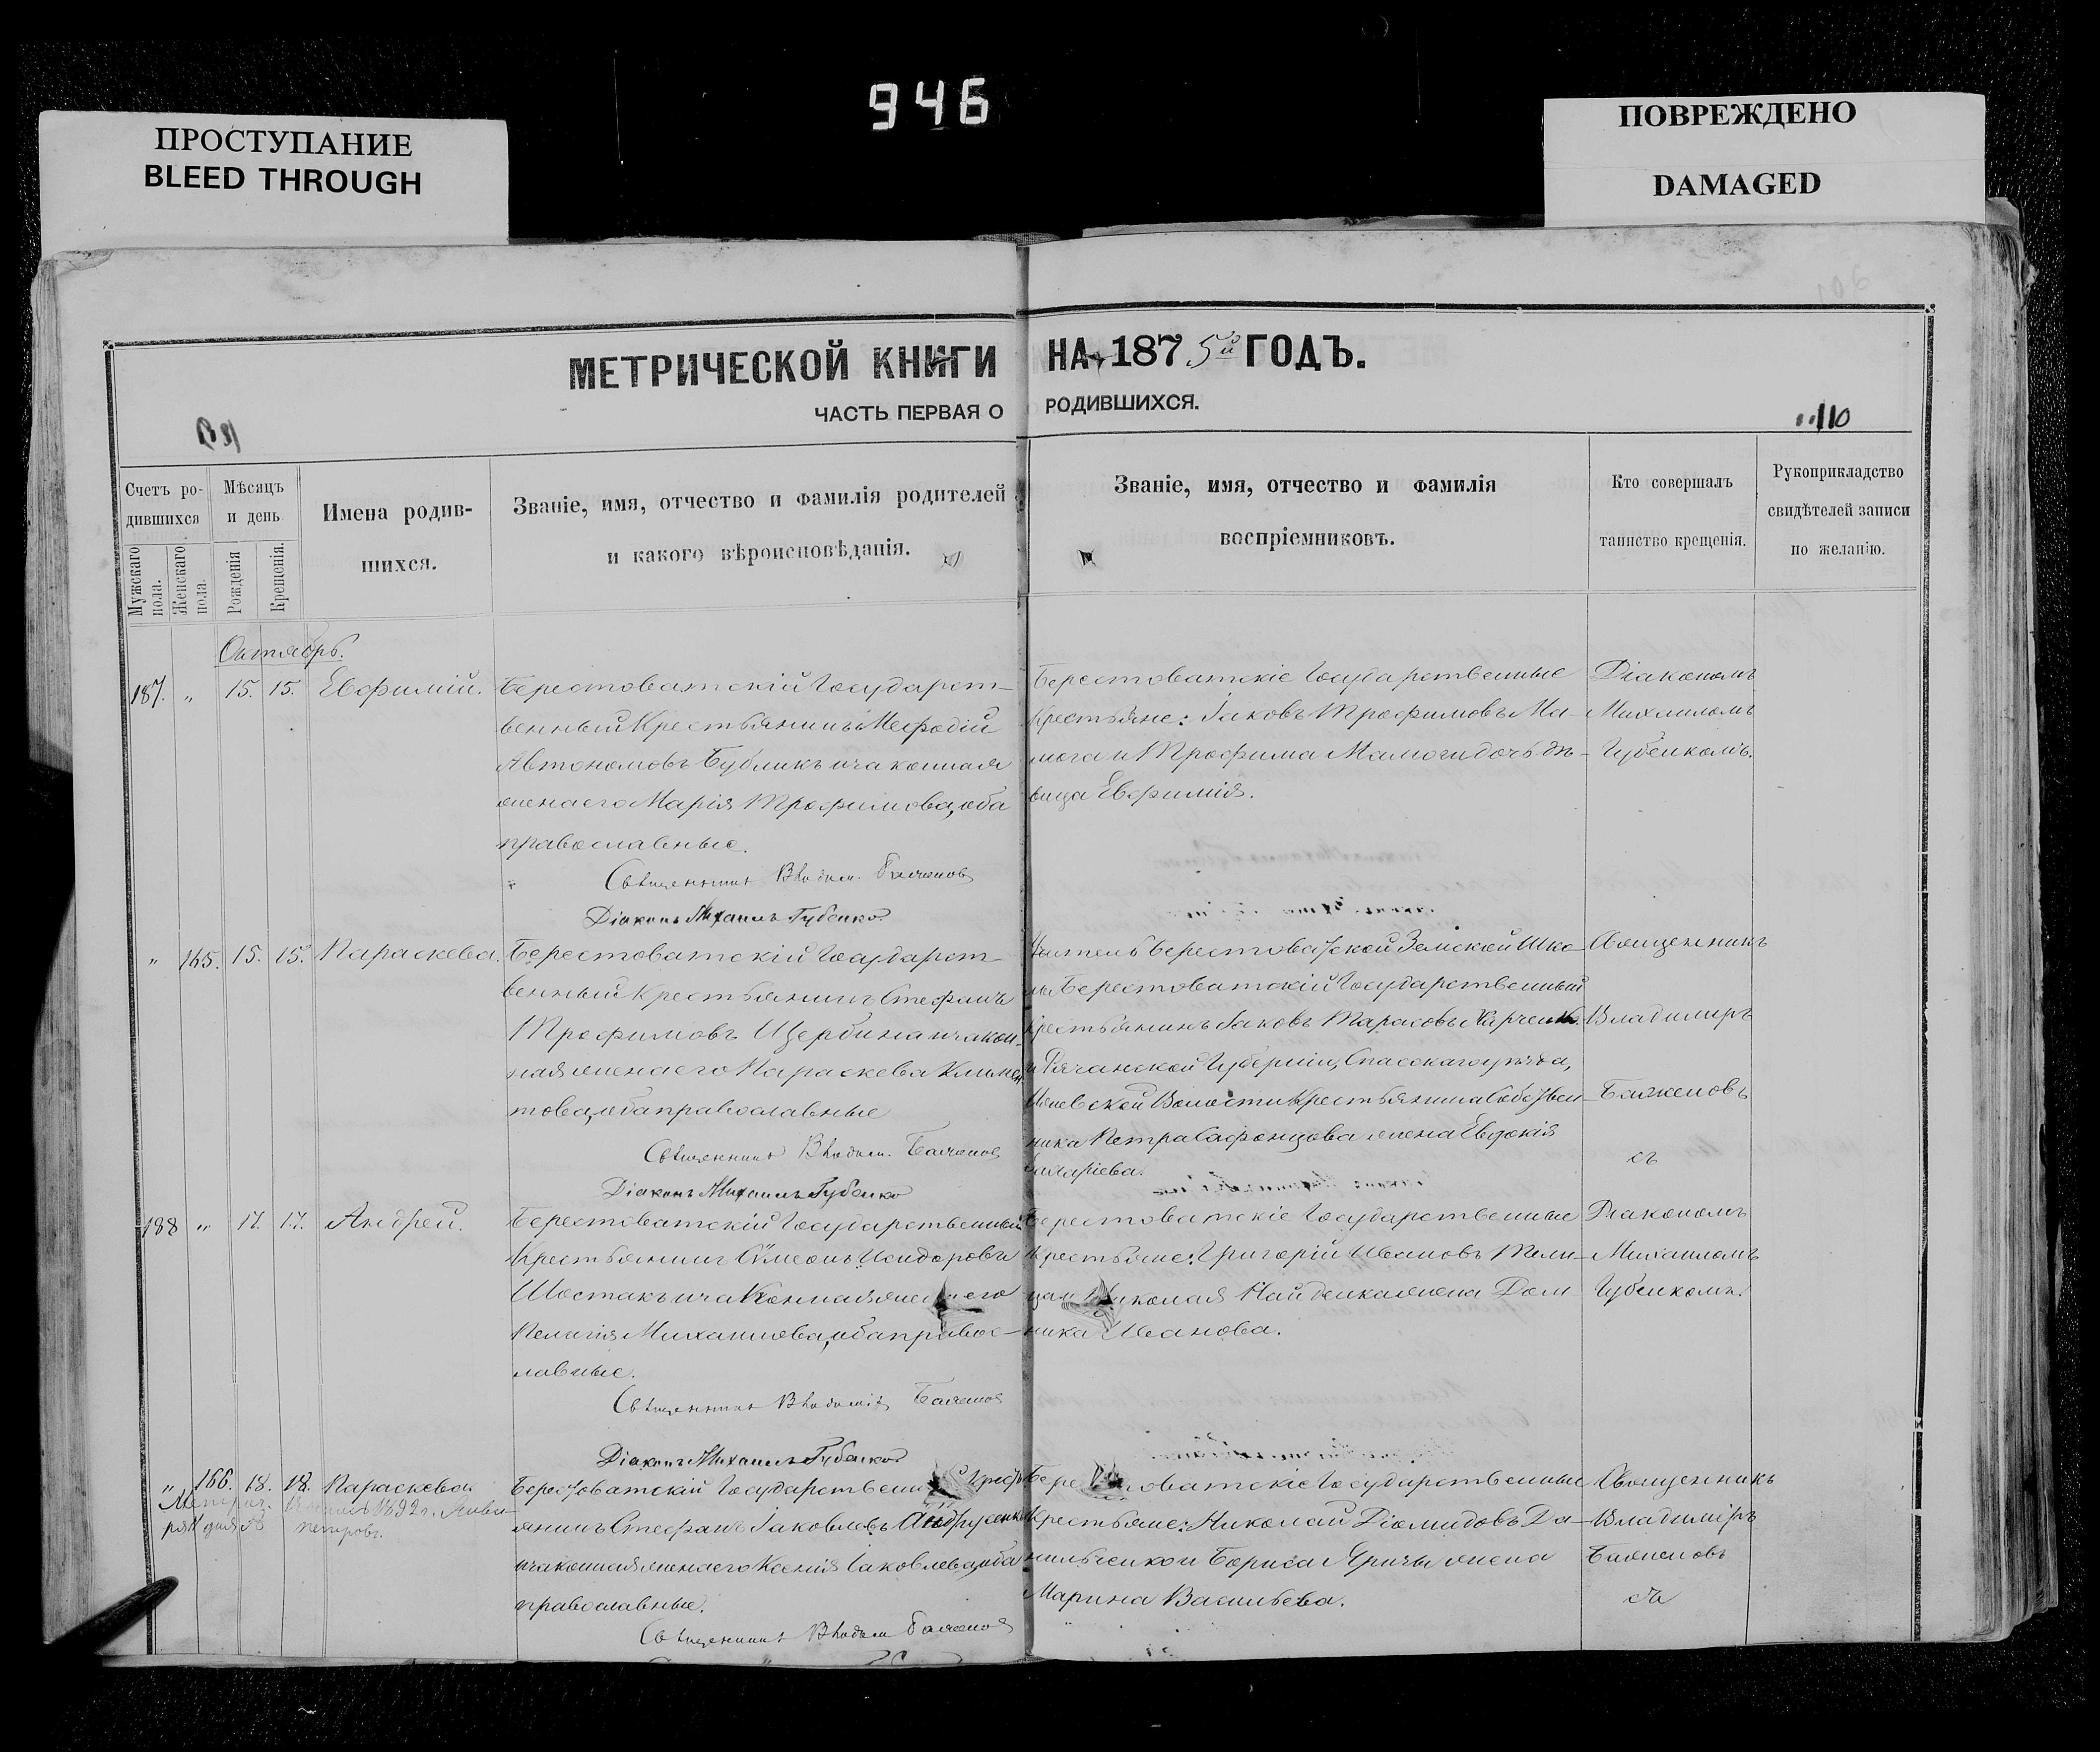 946
ПРОСТУПАНИЕ
BLEED THROUGH
ПОВРЕЖДЕНО
DAMAGED
МЕТРИЧЕСКОЙ КНИГИ НА 1875й ГОДЪ.
ЧАСТЬ ПЕРВАЯ О РОДИВШИХСЯ.
110
Счетъ ро-
дившихся
Мужскаго пола.
Женскаго пола.
Мѣсяцъ
и день
Рожденія
Крещенія.
Имена родив-
шихся.
Званіе, имя, отчество и фамилія родителей
и какого вѣроисповѣданія.
Званіе, имя, отчество и фамилія
воспріемниковъ.
Кто совершалъ
таинство крещенія.
Рукоприкладство
свидѣтелей записи
по желанію.
Октябрь.
187. " 15. 15. Евфимій.
Берестоватскій Государст-
венный Крестьянинъ Мефодій
Автономовъ Бубликъ и законная
жена его Марія Трофимова, оба
православные.
Священникъ Владим. Баженовъ
Діаконъ Михаилъ Губенко
Берестоватскіе Государственные
Крестьяне: Іаковъ Трофимовъ Ма-
мога и Трофима Мамоги дочь дѣ-
вица Евфимія.
Діакономъ
Михаиломъ
Губенкомъ.
" 165. 15. 15. Параскева.
Берестоватскій Государст-
венный Крестьянинъ Стефанъ
Трофимовъ Щербина и закон-
ная жена его Параскева Климен
това, оба православные
Священникъ Владим. Баженовъ
Діаконъ Михаилъ Губенко
Учитель Берестоватской Земской Шко-
лы Берестоватскій Государственный
крестьянинъ Іаковъ Тарасовъ Харченко
и Рязанской Губерніи, Спасскаго уѣзда,
Волости Крестьянина Собствен-
ника Петра Сафонцова жена Евдокія
Священникъ
Владимиръ
Баженовъ
съ
188 " 17. 17. Андрей.
Берестоватскій Государственный
Крестьянинъ Сѵмеонъ Исидоровъ
Шостакъ и законная жена его
Пелагія Михаилова, оба правос-
лавные.
Священникъ Владимір Баженовъ
Діаконъ Михаилъ Губенко
Берестоватскіе Государственные
Крестьяне: Григорій Ивановъ Тели-
ца и Николая Найденка жена Дом
ника Иванова.
Діакономъ
Михаиломъ
Губенкомъ.
" 166. 18. 18. Параскева.
1892 г.
Берестоватскій Государственный Крест
янинъ Стефанъ Іаковлевъ Андрусенко
и законная жена его Ксенія Іаковлева, оба
православные.
Священникъ Владим Баженовъ
Берестоватскіе Государственные
Крестьяне: Николай Діомидовъ Да-
нильченко и Бориса Яричы жена
Марина Васильева.
Священникъ
Владиміръ
Баженовъ
съ